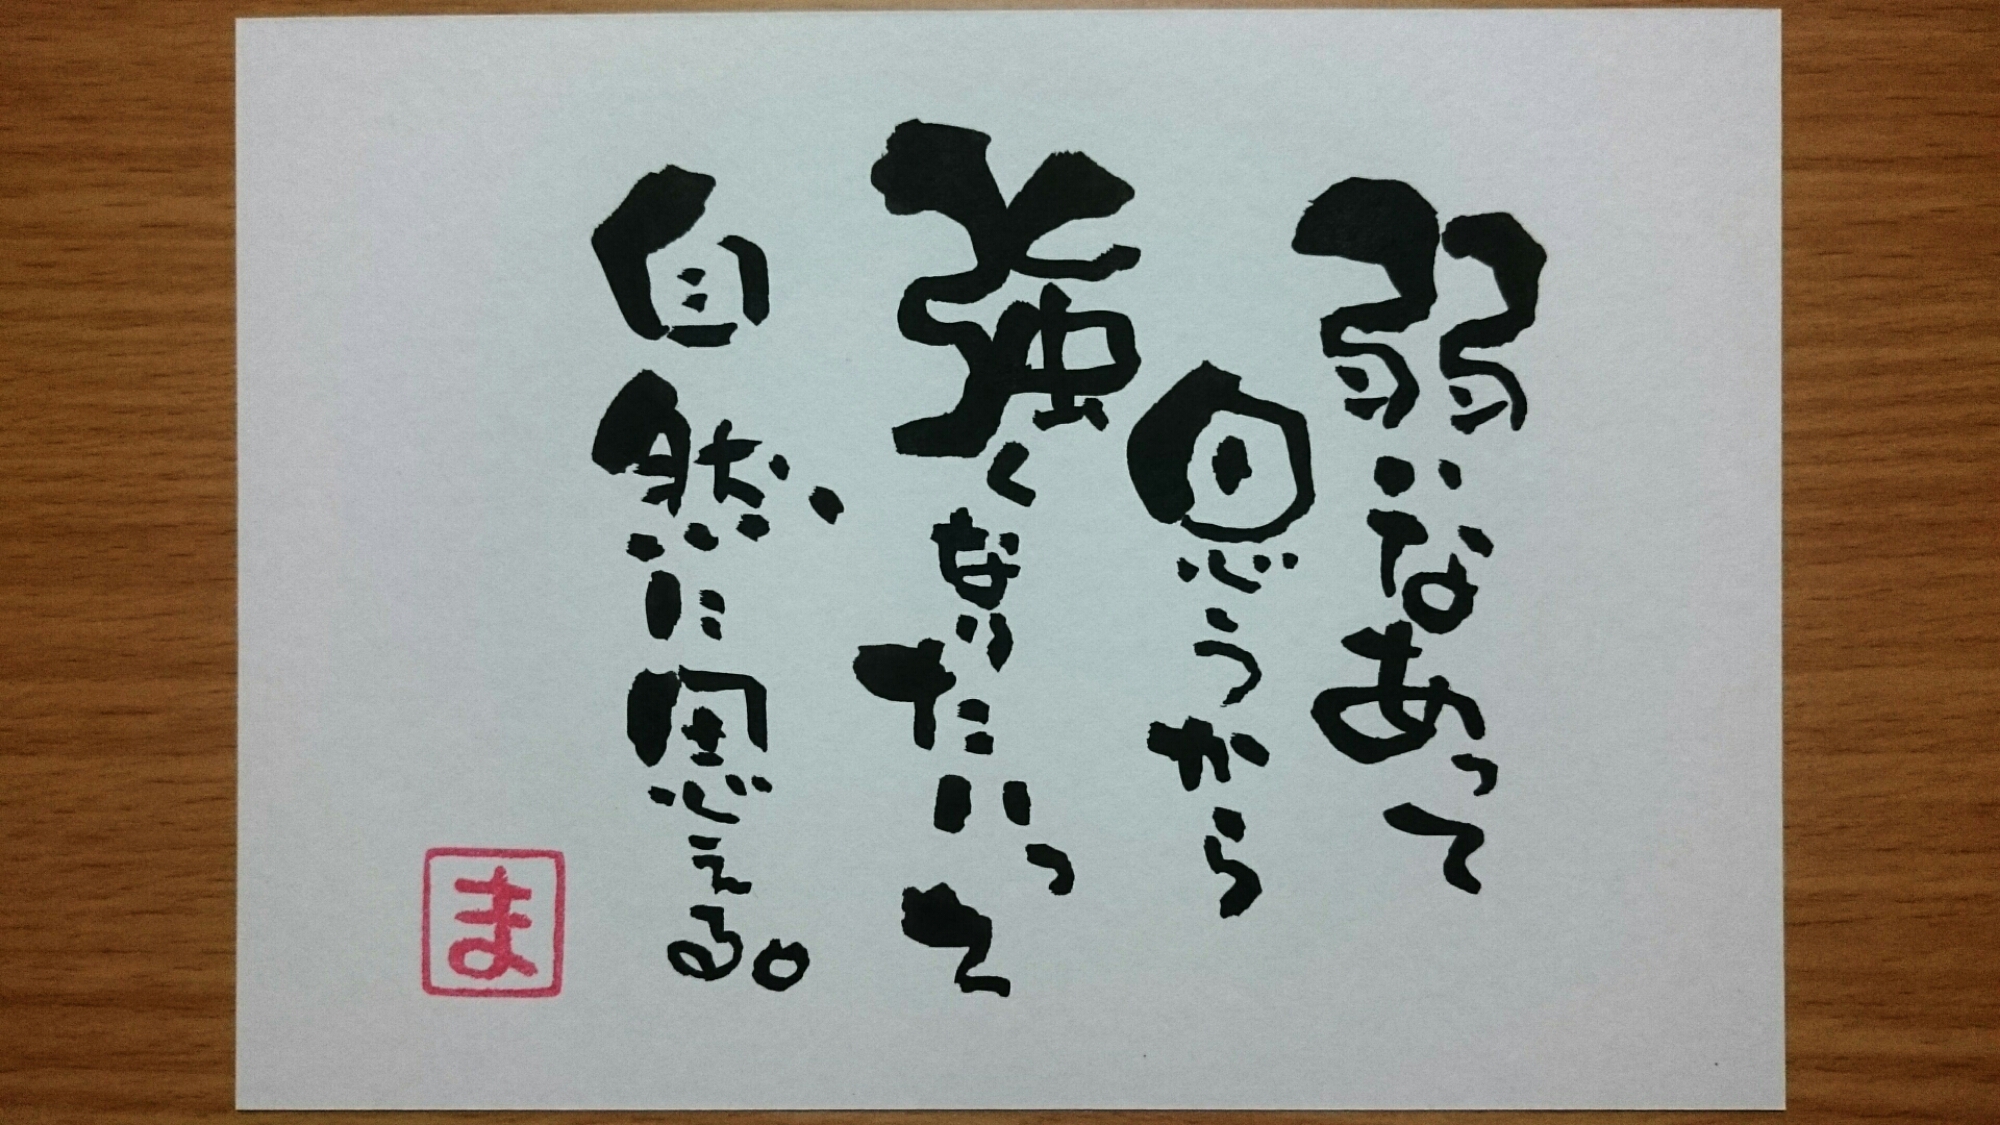 弱いなあって
思うから
強くなりたいって
自然に思える。
ま